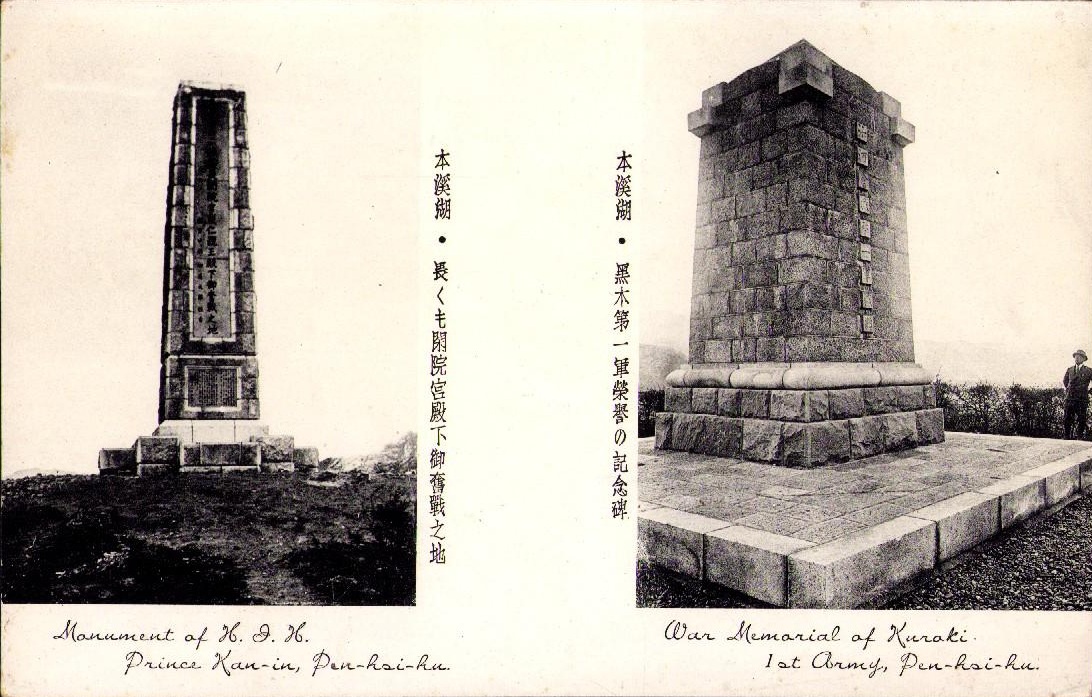 仁親王殿下御奮戰之地
本溪湖・畏くも閑院宮殿下御奮戰之地
Monument of H. I. H.
Prince Kan-in, Pen-hsi-hu.
本溪湖・黑木第一軍榮譽の記念碑
War Memorial of Kuroki
1st Army, Pen-hsi-hu.